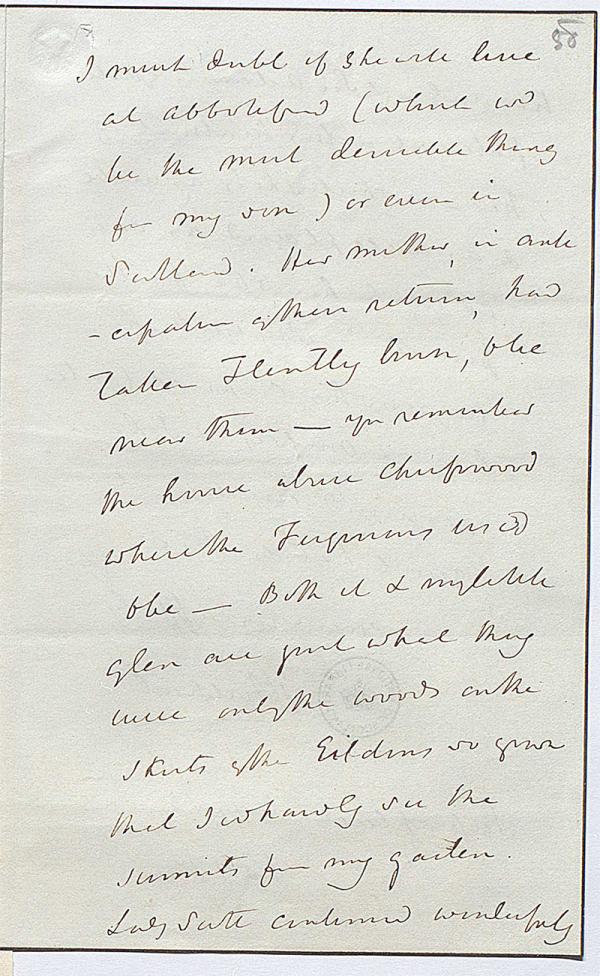 58
I must doubt if she will live
at Abbotsford (which wd
be the most desirable thing
for my son) or even in
Scotland. Her mother, in anti
-cipation of their return, had
taken Huntly burn, to be
near them — you remember
the house above Chiefswood
where the Fergusons used
to be — Both it & my little
glen are just what they
were only the woods on the
skirts of the Eildons so grown
that I cd hardly see the
summits from my garden.
Lady Scott continued wonderfully